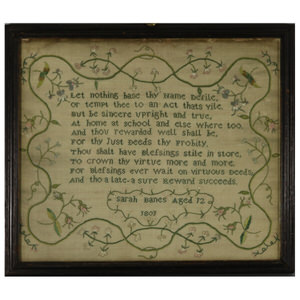 Let nothing base thy Name Defile,
Or tempt thee to an Act thats vile.
But be sincere upright and true,
At home at school and else where too.
And thou rewarded well shall be,
For thy Just Deeds thy Probity,
Thou shalt have Blefsings still in store,
To crown thy virtue more and more.
For Blefsings ever wait on virtuous Deeds,
And tho a late a sure Reward succeeds.
Sarah Danes Aged 12